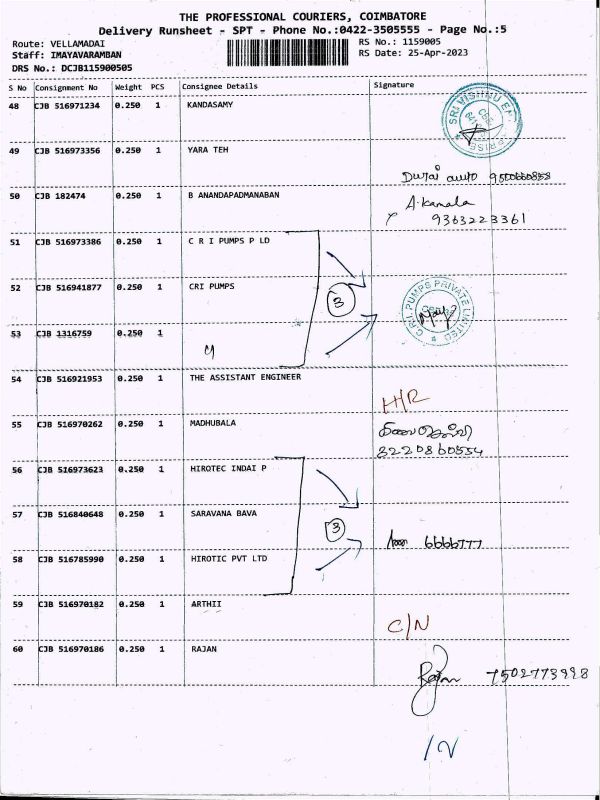 THE PROFESSIONAL COURIERS, COIMBATORE
Delivery Runsheet - SPT - Phone No.:0422-3505555 - Page No.:5
Route: VELLAMADAI RS No.: 1159005
Staff: IMAYAVARAMBAN RS Date: 25-Apr-2023
DRS No.: DCJB115900505
S No Consignment No Weight PCS Consignee Details Signature
48 CJB 516971234 0.250 1 KANDASAMY
SRI VISHNU
49 CJB 516973356 0.250 1 YARA TEH
9500660858
50 CJB 182474 0.250 1 B ANANDAPADMANABAN
A. Kamala
9363223361
51 CJB 516973386 0.250 1 C R I PUMPS P LD
52 CJB 516941877 0.250 1 CRI PUMPS
3
C.R.I. PUMPS PRIVATE LIMITED
53 CJB 1316759 0.250 1
54 CJB 516921953 0.250 1 THE ASSISTANT ENGINEER
H/R
55 CJB 516970262 0.250 1 MADHUBALA
8220860554
56 CJB 516973623 0.250 1 HIROTEC INDAI P
57 CJB 516840648 0.250 1 SARAVANA BAVA
3
6666777
58 CJB 516785990 0.250 1 HIROTIC PVT LTD
59 CJB 516970182 0.250 1 ARTHII
C/N
60 CJB 516970186 0.250 1 RAJAN
Rajan 7502773998